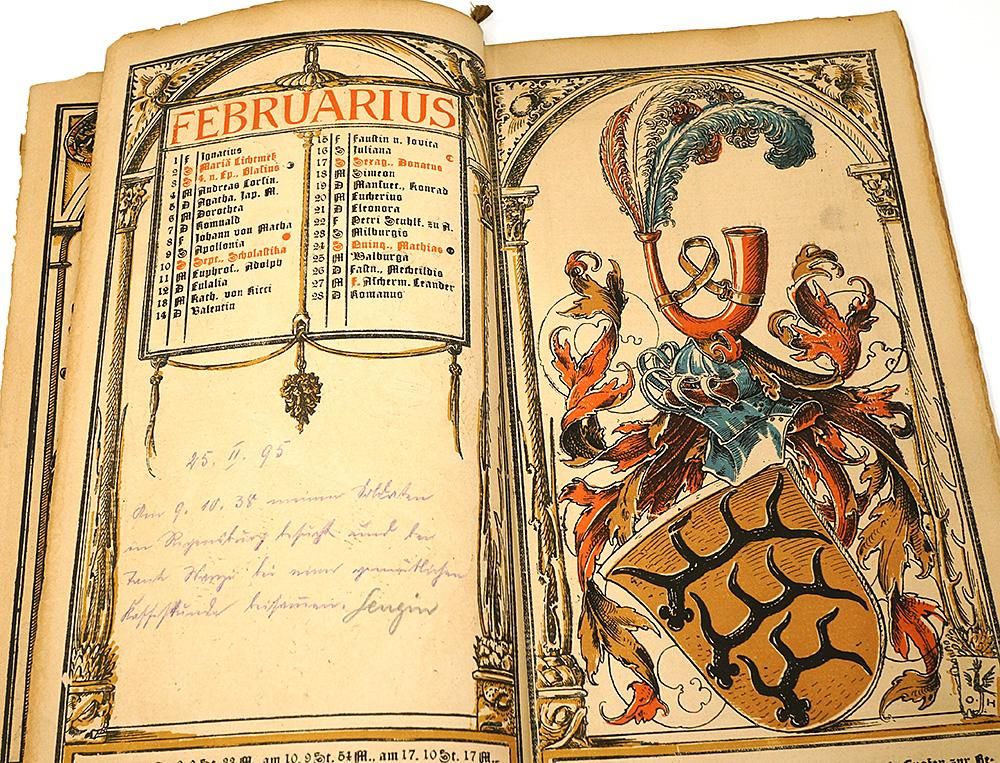 FEBRUARIUS
1 F Ignatius
2 S Mariä Lichtmeß
3 S 4. n. Ep., Blasius
4 M Andreas Corsin.
5 D Agatha, Jap. M.
6 M Dorothea
7 D Romuald
8 F Johann von Matha
9 S Apollonia
10 S Sept., Scholastika
11 M Euphros., Adolph
12 D Eulalia
13 M Kath. von Ricci
14 D Valentin
15 F Faustin u. Jovita
16 S Juliana
17 S Sexag., Donatus
18 M Simeon
19 D Mansuet., Konrad
20 M Eucherius
21 D Eleonora
22 F Petri Stuhlf. zu A.
23 S Milburgis
24 S Quinq., Mathias
25 M Walburga
26 D Fastn., Mechtildis
27 M F. Ascherm. Leander
28 D Romanus
25. II. 95
Am 9. 10. 38 meinen Soldaten
in Regensburg besucht und bei
Tante bei einer gemütlichen
Kaffeestunde beisammen.
O. H
St. 22 M., am 10. 9 St. 54 M., am 17. 10 St. 17 M.,
zur Be-